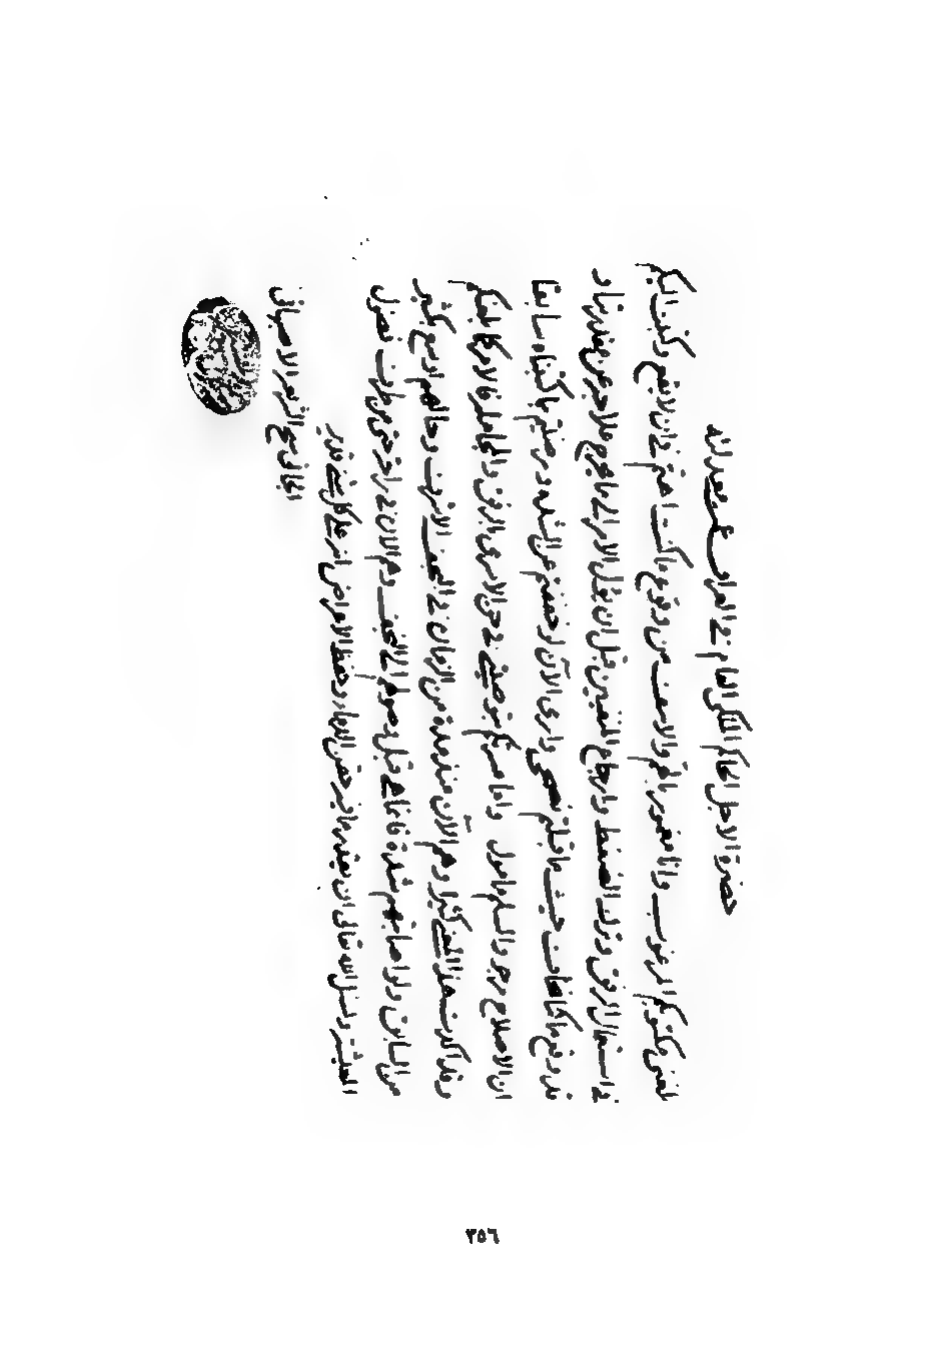 حضرة الاجل الحاكم الملكي العام في العراق
بلغني مكتوبكم المرغوب وانا مغموم بالغم والاسف من وقوع ما كنت اهتم في ان لا يقع وكتبت اليكم
في استعمال الرفق وترك الضغط وارجاع المنفيين قبل ان يؤل الامر الى ما
قد وقع ما كنا نخاف حيث ما قبلتم نصحي وارى الآن لو خففتم عن الشدة ورضيتم بما كتبناه سابقا
ان الاصلاح مرجو والسلم مامول واما مسرتكم بتوصيتي في حق الاسرى بالرفق والمجاملة فالامر كما بلغكم
وقد اكدت هذا المعنى كثيرا وهم الآن منذ مدة من الزمان في النجف الاشرف وحالهم
من السابق ولو اصابتهم شدة فانما هي قبل وصولهم الى النجف وهم الان في راحة حتى من طرف
ونسئل الله تعالى ان حقن الدماء وحفظ الاعراض انه على كل شيء قدير
الجاني شيخ الشريعة الاصبهاني
٣٥٦